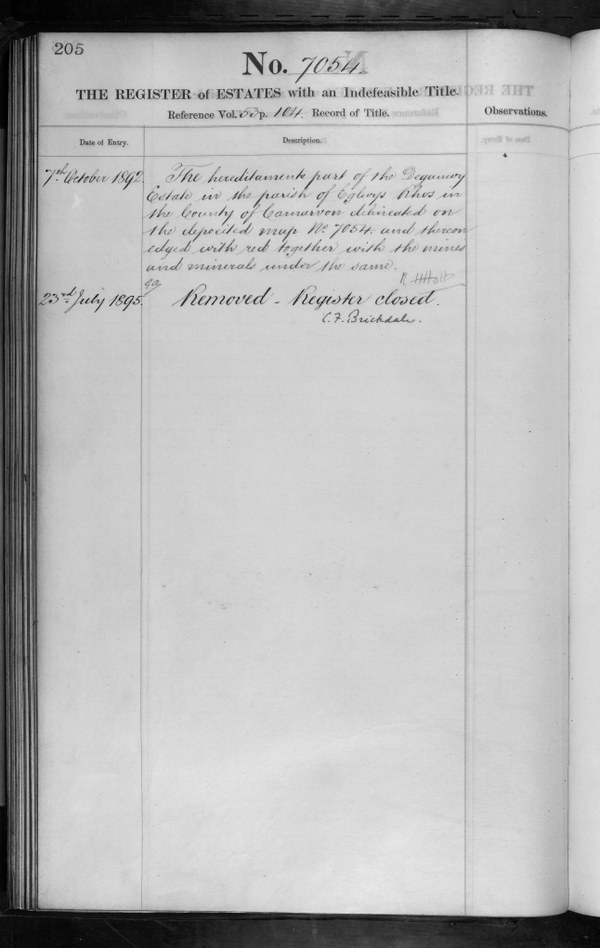 205
No. 7054.
THE REGISTER of ESTATES with an Indefeasible Title.
Reference Vol. 53 p. 104. Record of Title.
Observations.
Date of Entry.
Description.
7th October 1892.
The hereditaments part of the Deganwy
Estate in the parish of Eglwys Rhos in
the County of Carnarvon delineated on
the deposited map No 7054. and thereon
edged with red together with the mines
and minerals under the same.
Holt
23rd July 1895.
Removed - Register closed.
C. F. Brickdale.